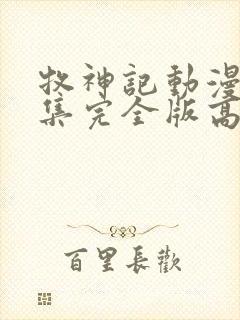 牧神記動漫
集完全版高
百里長歡